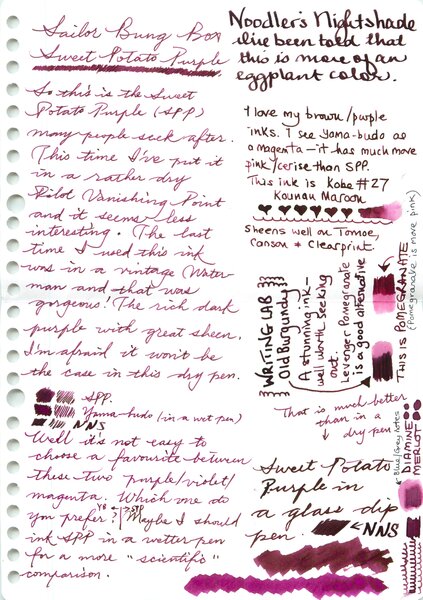 Sailor Bung Box
Sweet Potato Purple
So this is the Sweet
Potato Purple (SPP)
many people seek after.
This time I've put it
in a rather dry
Pilot Vanishing Point
and it seems less
interesting. The last
time I used this ink
was in a vintage Water-
man and that was
gorgeous! The rich dark
purple with great sheen.
I'm afraid it won't be
the case in this dry pen.
SPP.
Yama-budo (in a wet pen)
NNS
Well it's not easy to
choose a favourite between
these two purple/violet/
magenta. Which one do
you prefer? YB ↑ ↑ SPP Maybe I should
ink SPP in a wetter pen
for a more "scientific"
comparison.
Noodler's Nightshade
I've been told that
this is more of an
eggplant color.
I love my brown/purple
inks. I see Yama-budo as
a magenta – it has much more
pink/cerise than SPP.
This ink is Kobe #27
Kounan Maroon
Sheens well on Tomoe,
Canson & Clearprint.
WRITING LAB
Old Burgundy
A stunning ink –
well worth seeking
out.
Levenger Pomegranate
is a good alternative
THIS IS POMEGRANATE
(Pomegranate is more pink)
That is much better
than in a
↓ dry pen
Sweet Potato
Purple in
a glass dip
pen.
← NNS
Blue/Grey notes
DIAMINE
MERLOT